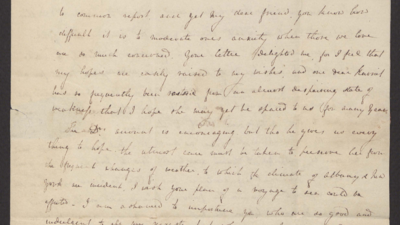 to common report, and yet my dear friend you know how
difficult it is to moderate ones anxiety when those we love
are so much concerned. Your letter delighted me, for I feel that
my hopes are easily raised to my wishes and our dear
has so frequently been raised from an almost despairing state of
that I hope she may yet be spared to us for many years
The Drs account is encouraging but tho he gives us every
thing to hope, the utmost care must be taken to preserve her from
the changes of weather to which the climate of Albany &
York are incident, I wish your plan of a voyage to sea could be
effected. I am ashamed to you who are so good and
indulgent to